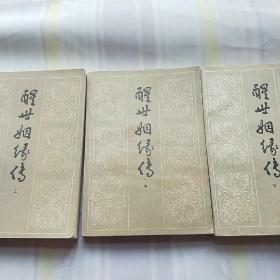 醒世姻缘传
上
醒世姻缘传
中
醒世姻缘传